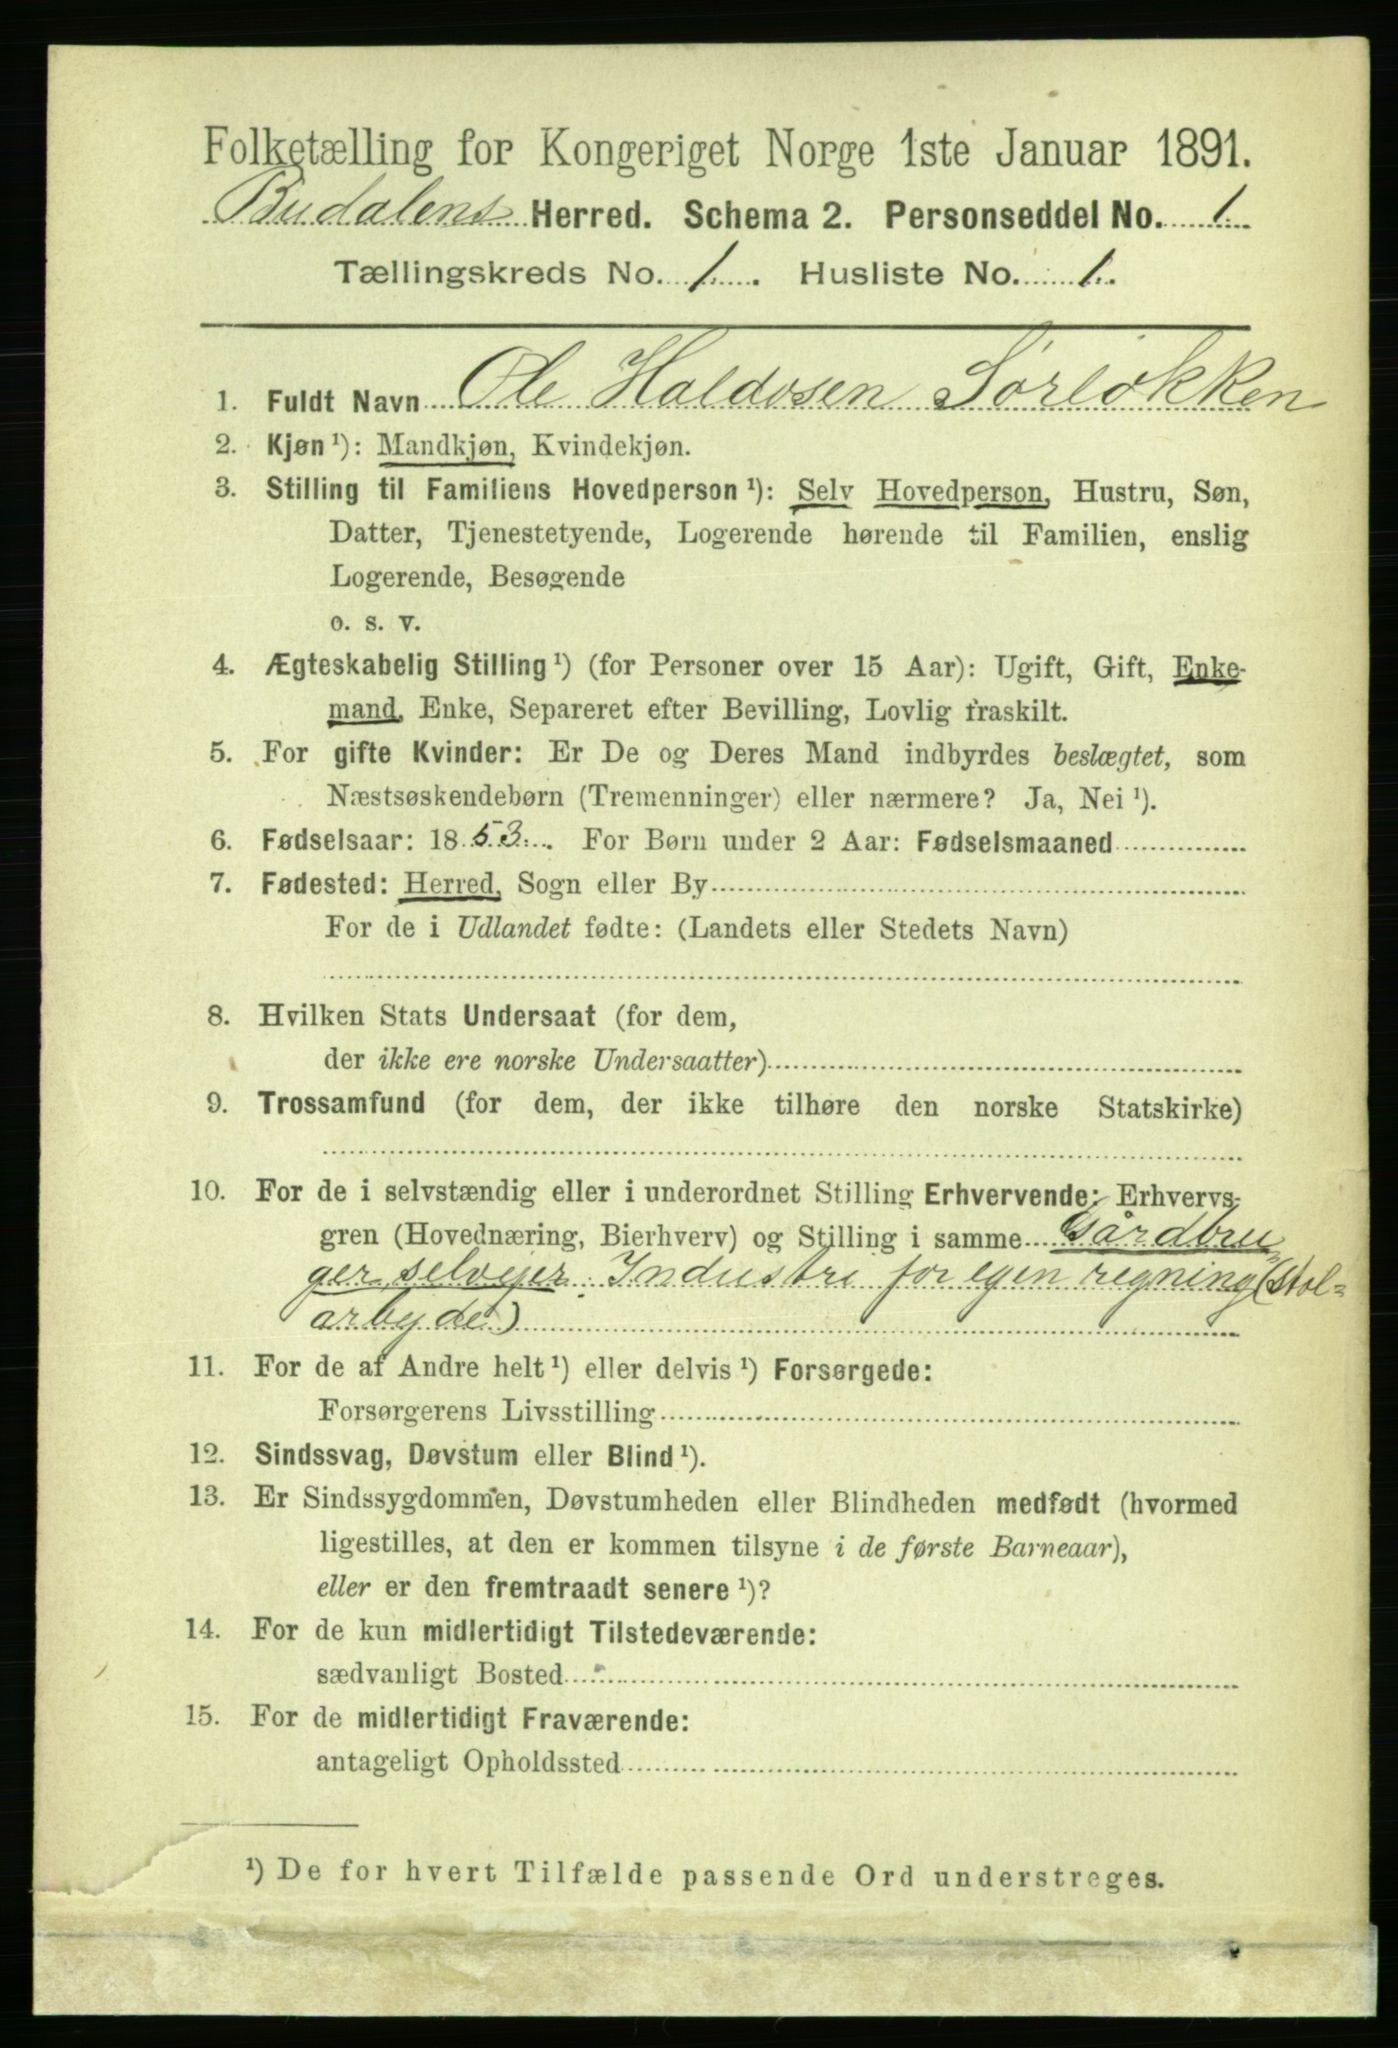 Folketælling for Kongeriget Norge 1ste Januar 1891.
Budalens Herred. Schema 2. Personseddel No. 1
Tællingskreds No. 1. Husliste No. 1.
1. Fuldt Navn Ole Haldosen Sørløkken
2. Kjøn ¹): Mandkjøn, Kvindekjøn.
3. Stilling til Familiens Hovedperson ¹): Selv Hovedperson, Hustru, Søn,
Datter, Tjenestetyende, Logerende hørende til Familien, enslig
Logerende, Besøgende
o. s. v.
4. Ægteskabelig Stilling ¹) (for Personer over 15 Aar): Ugift, Gift, Enke-
mand, Enke, Separeret efter Bevilling, Lovlig fraskilt.
5. For gifte Kvinder: Er De og Deres Mand indbyrdes beslægtet, som
Næstsøskendebørn (Tremenninger) eller nærmere? Ja, Nei ¹).
6. Fødselsaar: 1853. For Børn under 2 Aar: Fødselsmaaned
7. Fødested: Herred, Sogn eller By
For de i Udlandet fødte: (Landets eller Stedets Navn)
8. Hvilken Stats Undersaat (for dem,
der ikke ere norske Undersaatter)
9. Trossamfund (for dem, der ikke tilhøre den norske Statskirke)
10. For de i selvstændig eller i underordnet Stilling Erhvervende: Erhvervs-
gren (Hovednæring, Bierhverv) og Stilling i samme Gårdbru=
ger, selvejer. Industri for egen regning (stol=
arbyde)
11. For de af Andre helt ¹) eller delvis ¹) Forsørgede:
Forsørgerens Livsstilling
12. Sindssvag, Døvstum eller Blind ¹).
13. Er Sindssygdommen, Døvstumheden eller Blindheden medfødt (hvormed
ligestilles, at den er kommen tilsyne i de første Barneaar),
eller er den fremtraadt senere ¹)?
14. For de kun midlertidigt Tilstedeværende:
sædvanligt Bosted
15. For de midlertidigt Fraværende:
antageligt Opholdssted
¹) De for hvert Tilfælde passende Ord understreges.